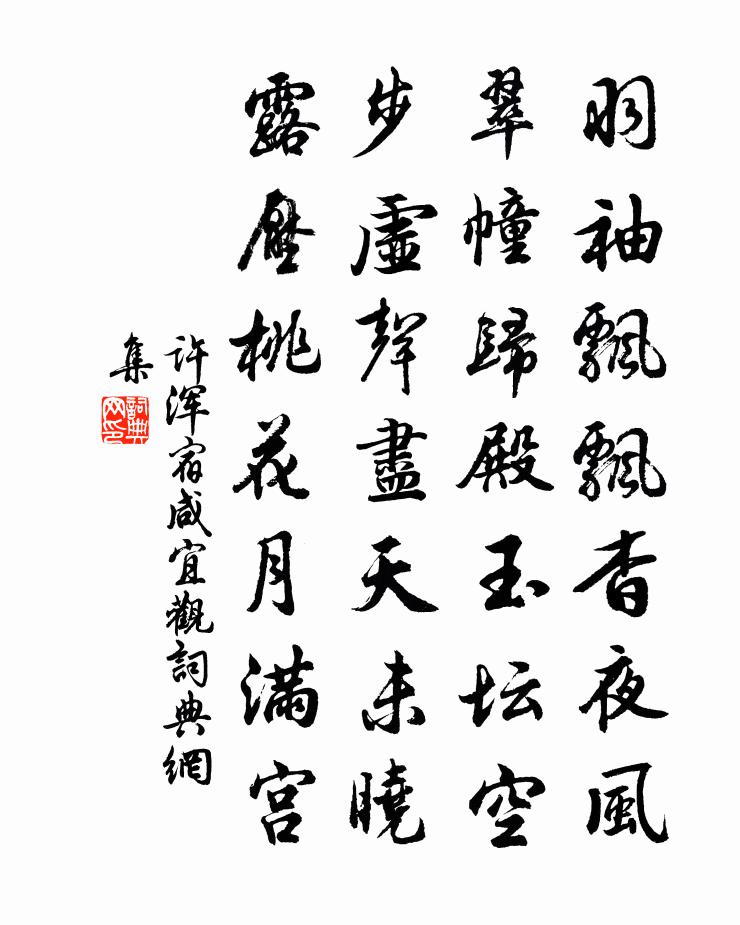 羽袖飄飄杳夜風
翠幢歸殿玉坛空
步虛聲盡天未曉
露壓桃花月满宫
许浑宿咸宜觀詞典網
集
詞典
网印